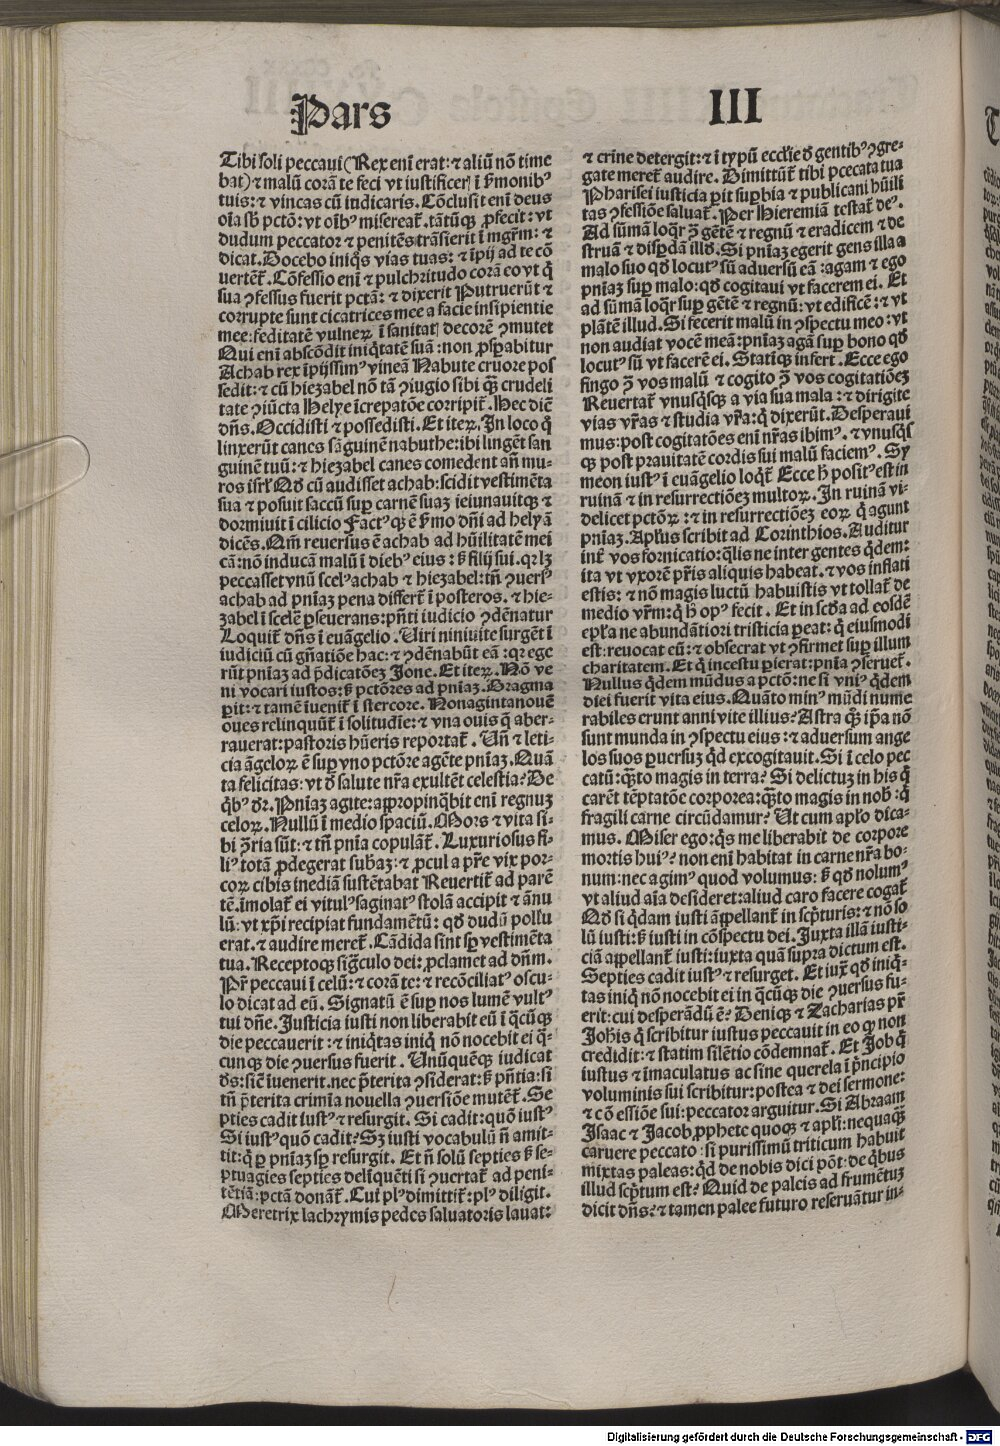 Pars
III
Tibi soli peccaui (Rex enī erat: ⁊ aliū nō time
bat) ⁊ malū corā te feci vt iustificerꝭ ī ẜmonibꝰ
tuis: ⁊ vincas cū iudicaris. Cōclusit enī deus
oīa sb̄ pctō: vt oībꝰ misereaẗ. tātūqꝫ ꝓfecit: vt
dudum peccator ⁊ penitēs trāsierit ī mgr̄m: ⁊
dicat. Docebo iniqͦs vias tuas: ⁊ īpij ad te cō
uertēẗ. Cōfessio enī ⁊ pulchritudo corā eo vt q̇
sua ꝯfessus fuerit pctā: ⁊ dixerit Putruerūt ⁊
corrupte sunt cicatrices mee a facie insipientie
mee: feditatē vulneꝝ ī sanitatꝭ decorē ꝯmutet
Qui enī abscōdit iniq̇tatē suā: non ꝓsꝑabitur
Achab rex īpijssimꝰ vineā Nabute cruore pos
sedit: ⁊ cū hiezabel nō tā ꝯiugio sibi qꝫ crudeli
tate ꝯiūcta Helye īcrepatōe corripiẗ. Hec dic̄
dn̄s. Occidisti ⁊ possedisti. Et iteꝝ. In loco q̊
linxerūt canes sāguinē nabuthe: ibi lingēt san
guinē tuū: ⁊ hiezabel canes comedent an̄ mu-
ros isrl̄ Qd̄ cū audisset achab: scidit vestimēta
sua ⁊ posuit saccū suꝑ carnē suaꝫ ieiunauitqꝫ ⁊
dormiuit ī cilicio Factꝰqꝫ ē ẜmo dn̄i ad helyā
dicēs. Qm̄ reuersus ē achab ad hūilitatē mei
cā: nō inducā malū ī diebꝰ eius: ẜ filij sui. qꝛ lꝫ
peccasset vnū scelꝰ achab ⁊ hiezabel: tn̄ ꝯuersꝰ
achab ad pn̄iaꝫ pena differẗ ī posteros. ⁊ hie-
zabel ī scelē ꝑseuerans: pn̄ti iudicio ꝯdēnatur
Loquiẗ dn̄s ī euāgelio. Uiri niniuite surgēt ī
iudiciū cū gn̄atiōe hac: ⁊ ꝯdēnabūt eā: qꝛ ege
rūt pn̄iaꝫ ad p̄dicatōeꝫ Jone. Et iteꝝ. Nō ve
ni vocari iustos: ẜ pctōres ad pn̄iaꝫ. Dragma
ꝑit: ⁊ tamē īueniẗ ī stercore. Nonagintanouē
oues relinquūẗ ī solitudīe: ⁊ vna ouis q̄ aber-
rauerat: pastoris hūeris reportaẗ. Un̄ ⁊ leti-
cia āgeloꝝ ē suꝑ vno pctōre agēte pn̄iaꝫ. Quā
ta felicitas: vt ď salute nr̄a exultēt celestia? De
q̇bꝰ dr̄. Pn̄iaꝫ agite: appropinq̄bit enī regnuꝫ
celoꝝ. Nullū ī medio spaciū. Mors ⁊ vita si-
bi ꝯ̄ria sūt: ⁊ tn̄ pn̄ia copulāẗ. Luxuriosus fi-
liꝰ totā ꝓdegerat sub̄aꝫ: ⁊ ꝓcul a pr̄e vix por-
coꝝ cibis inediā sustētabat Reuertiẗ ad parē
tē. īmolaẗ ei vitulꝰ saginatꝰ stolā accipit ⁊ ānu
lū: vt xp̄i recipiat fundamētū: qd̄ dudū pollu
erat. ⁊ audire mereẗ. Cādida sint sꝑ vestimēta
tua. Receptoqꝫ sig̃culo dei: ꝓclamet ad dn̄m.
Pr̄ peccaui ī celū: ⁊ corā te: ⁊ recōciliatꝰ oscu-
lo dicat ad eū. Signatū ē suꝑ nos lumē vultꝰ
tui dn̄e. Justicia iusti non liberabit eū ī q̄cūqꝫ
die peccauerit: ⁊ iniq̇tas iniq̇ nō nocebit ei q̄-
cunqꝫ die ꝯuersus fuerit. Unūquēqꝫ iudicat
ďs: sic̄ īuenerit. nec p̄terita ꝯsiderat: ẜ pn̄tia: si
tn̄ p̄terita crimīa nouella ꝯuersiōe mutēẗ. Se
pties cadit iustꝰ ⁊ resurgit. Si cadit: quō iustꝰ
Si iustꝰ quō cadit? Sꝫ iusti vocabulū n̄ amit-
tit: q̇ ꝑ pn̄iaꝫ sꝑ resurgit. Et n̄ solū septies ẜ se-
ptuagies septies delīquēti si ꝯuertaẗ ad peni-
tētiā: pctā donāẗ. Cui plꝰ dimittiẗ: plꝰ diligit.
Meretrix lachrymis pedes saluatoris lauat:
⁊ crine detergit: ⁊ ī typū eccl̄ie ď gentibꝰ ꝯgre-
gate mereẗ audire. Dimittūẗ tibi pctcata tua
Pharisei iusticia ꝑit suꝑbia ⁊ publicani hūili
tas ꝯfessiōe saluaẗ. Per Hieremiā testaẗ deꝰ.
Ad sūmā loq̄r ꝯ̄ gētē ⁊ regnū ⁊ eradicem ⁊ de
struā ⁊ disꝑdā illd̄. Si pn̄iaꝫ egerit gens illa a
malo suo qd̄ locutꝰ sū aduersū eā: agam ⁊ ego
pn̄iaꝫ suꝑ malo: qd̄ cogitaui vt facerem ei. Et
ad sūmā loq̄r suꝑ gētē ⁊ regnū: vt edificē: ⁊ vt
plātē illud. Si fecerit malū in ꝯspectu meo: vt
non audiat vocē meā: pn̄iaꝫ agā suꝑ bono qd̄
locutꝰ sū vt facerē ei. Statiqꝫ infert. Ecce ego
fingo ꝯ̄ vos malū ⁊ cogito ꝯ̄ vos cogitatiōeꝫ
Reuertaẗ vnusq̇sqꝫ a via sua mala: ⁊ dirigite
vias vr̄as ⁊ studia vr̄a: q̇ dixerūt. Desperaui
mus: post cogitatōes enī nr̄as ibimꝰ. ⁊ vnusq̇s
qꝫ post prauitatē cordis sui malū faciemꝰ. Sy
meon iustꝰ ī euāgelio loq̇ẗ Ecce h̄ positꝰ est in
ruinā ⁊ in resurrectiōeꝫ multoꝝ. In ruinā vi-
delicet pctōꝝ: ⁊ in resurrectiōeꝫ eoꝝ q̇ agunt
pn̄iaꝫ. Apl̄us scribit ad Corinthios. Auditur
inẗ vos fornicatio: q̄lis ne inter gentes q̇dem:
ita vt vxorē pr̄is aliquis habeat. ⁊ vos inflati
estis: ⁊ nō magis luctū habuistis vt tollaẗ de
medio vr̄m: q̇ h̄ opꝰ fecit. Et in scďa ad eosdē
epl̄a ne abundātiori tristicia ꝑeat: q̇ eiusmodi
est: reuocat eū: ⁊ obsecrat vt ꝯfirmet suꝑ illum
charitatem. Et q̇ incestu ꝑierat: pn̄ia ꝯserueẗ.
Nullus q̇dem mūdus a pctō: ne si vniꝰ q̇dem
diei fuerit vita eius. Quāto minꝰ mūdi nume
rabiles erunt anni vite illius? Astra qꝫ ip̄a nō
sunt munda in ꝯspectu eius: ⁊ aduersum ange
los suos ꝑuersuꝫ qͥd excogitauit. Si ī celo pec
catū: qꝫto magis in terra? Si delictuꝫ in his q̇
carēt tēptatōe corporea: qꝫto magis in nob̄: q̇
fragili carne circūdamur? Ut cum apl̄o dica-
mus. Miser ego: q̇s me liberabit de corpore
mortis huiꝰ? non enī habitat in carne nr̄a bo-
num: nec agimꝰ quod volumus: ẜ qd̄ nolumꝰ
vt aliud aīa desideret: aliud caro facere cogaẗ
Qd̄ si q̇dam iusti āppellanẗ in scp̄turis: ⁊ nō so
lū iusti: ẜ iusti in cōspectu dei. Juxta illā iusti-
ciā appellanẗ iusti: iuxta quā supra dictum est.
Septies cadit iustꝰ ⁊ resurget. Et iux̄ qd̄ iniq̇-
tas iniq̇ nō nocebit ei in q̄cūqꝫ die ꝯuersus fu-
erit: cui desperādū ē? Deniqꝫ ⁊ Zacharias pr̄
Joh̄is q̇ scribitur iustus peccauit in eo ꝙ non
credidit: ⁊ statim silētio cōdemnaẗ. Et Job q̇
iustus ⁊ īmaculatus ac sine querela ī p̄ncipio
voluminis sui scribitur: postea ⁊ dei sermone:
⁊ cō essiōe sui: peccator arguitur. Si Abraam
Isaac ⁊ Jacob, ꝓphete quoqꝫ ⁊ apl̄i: nequaqꝫ
caruere peccato: si purissimū triticum habuit
mixtas paleas: qͥd de nobis dici pōt: de q̇bus
illud scp̄tum est? Quid de palcis ad frumētuꝫ
dicit dn̄s? ⁊ tamen palee futuro reseruātur in-
Digitalisierung gefördert durch die Deutsche Forschungsgemeinschaft - DFG